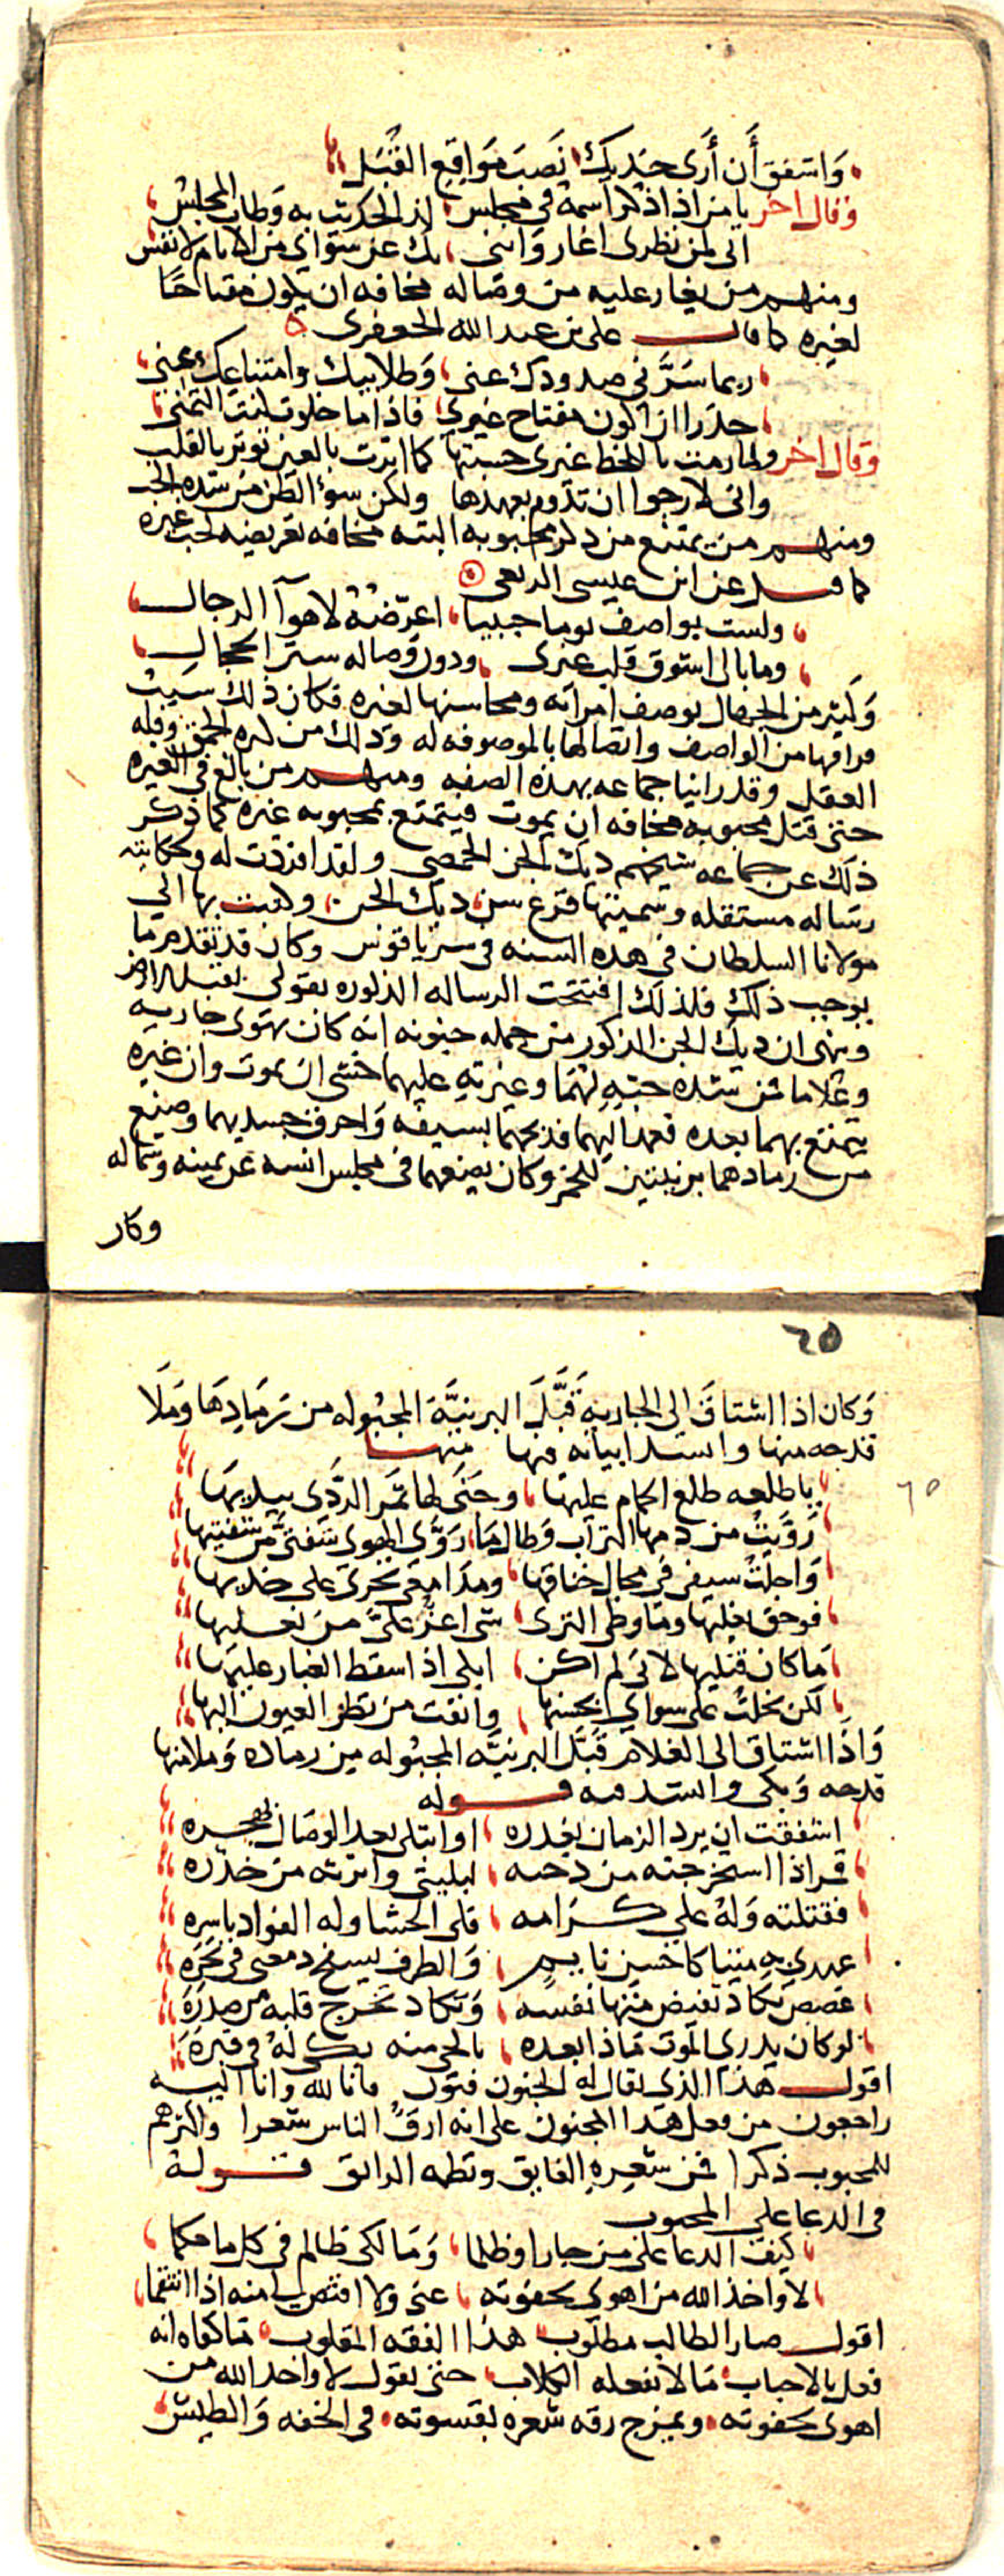 وَاشفق أَن أَرى خديك نَصبَ مَوَاقِع القُبَل
وقال اخر يا من اذا ذكر اسمه في مجلس لذ الحديث به وَطاب المجلسُ
اني لمن نظري اغار وَاننى بك عن سوَاي من الانام لانفس
ومنهم من يغار عليه من وصاله مخافه ان يكون مفتاحًا
لغيره كما قال على بن عبد الله الجعفرى
ربما سَرَّني صدودك عنى وَطلابيك وامتناعك منى
حذرا ان اكون مفتاح غيرى فاذا ما خلوت كنت التمنى
وقال اخر ولما رمت باللحظ غيرى حسبتها كما اثرت بالعين توثر بالقلب
وانى لارجوا ان تدوم بعهدها ولكن سوؤ الظن من شده الحب
ومنهم من يمتنع من ذكر محبوبه البته مخافه تعريضه لحب غيره
كما قيل عن ابن عيسى الربعى
ولست بواصف يوما حبيبا اعرّضهُ لاهوآ الرجال
وما بالى اشوق قلب غيرى ودون وصاله ستر الحجال
وَكثير من الجهال يوصف امراته ومحاسنها لغيره فكان ذلك سببُ
فراقها من الواصف واتصالها بالموصوفه له وذلك من كثره الحمق وقله
العقل وقد راينا جماعه بهذه الصفه ومنهم من بالغ في الغيره
حتى قتل محبوبه مخافه ان يموت فيتمتع بمحبوبه غيره كما ذكر
ذلك عن جماعه شيخهم ديك الجن الحمصى ولقد افردت له ولحكايته
رسَاله مستقله وسَميتها قرع سن ديك الجن وكتبت بها الى
مولانا السلطان في هذه السنه في سرياقوس وكان قد تقدم ما
يوجب ذلك فلذلك افتتحت الرساله المذكوره بقولى يقبل الارض
وينهى ان ديك الجن المذكور من جمله جنونه انه كان يهوَى جاريه
وغلاما فمن شده حبّهِ لهُمَا وغيرتهِ عليهما خشى ان يموت وان غيره
يتمتع بهما بعده فعمد اليهما فذبحهما بسيفه وَاحرق جسديهما وصنع
من رمادهما برنيتين للخمر وكان يضعهما فى مجلس انسه عن يمينه وشماله
وكان
٦٥
وَكان اذا اشتاقَ الى الجاريةِ قَبَّلَ البرنيَّة المجبُوله من رَمَادِهَا وَملَا
قدحه منها وانشد ابياته فيها منها
يا طلعه طلع الحمام عليها وجَنَى لها ثمَر الرَّدَى بيديهَا
رَوَّيتُ من دمها التراب وَطالمَا رَوَّى الهوى شفتىَّ من شفتيها
وَاجلتُ سيفى في مجال خناقها ومدَامعى تجرى على خديهَا
فوحق نعليها وما وطى الثرى شى اعز علىَّ من نعليها
مَا كان قتليها لانى لم اكن ابكى اذا سقط الغبار عليهَا
لكن بخلتُ على سواى بحسنها وانفت من نظر العيون اليها
وَاذَا اشتاق الى الغلام قَبَّل البرنيَّه المجبُوله من رماده وَملا منها
قدحه وَبكى وانشد فيه قوله
اشفقت ان يرد الزمان بغدره او ابتلى بعد الوصَال بهجره
قمر انا استخرجته من دجنه لبليتى واثرته من خدره
فقتلته وَلهُ علي كرَامه فلى الحشا وله الفواد باسره
عهدي به ميتا كاحسن نايم وَالطرف يسفح دمعى في نحَرِهِ
غصصٌ تكَاد تفيض منها نفسه وَتكاد تخرج قلبه من صدرَهِ
لوكان يدرى الموت مَاذا بعده بالحى منه بكى لهُ في قبرهِ
اقول هذا الذى يقال له الجنون فنون فانا لله وانا اليه
راجعون من فعل هذا المجنون على انه ارقّ الناس شعرا واكثرهم
للمحبوب ذكرا فمن شعرِهِ الفايق ونظمه الرائق قولهُ
في الدعا على المحبوب
كيف الدعا على من جار او ظلما وَمَالكى ظالم في كل ما حكما
لاواخذ الله من اهوى بجفوته عنى ولا اقتص لى منه اذا انتقما
اقول صار الطالب مطلوب هذا الفقه المقلوب مَا كفاه انه
فعل بالاحباب مَا لا تفعله الكلاب حتى يقول لا واخذ الله من
اهوى بجفوته ويمزج رقه شعره بقسوته في الخفه وَالطيش